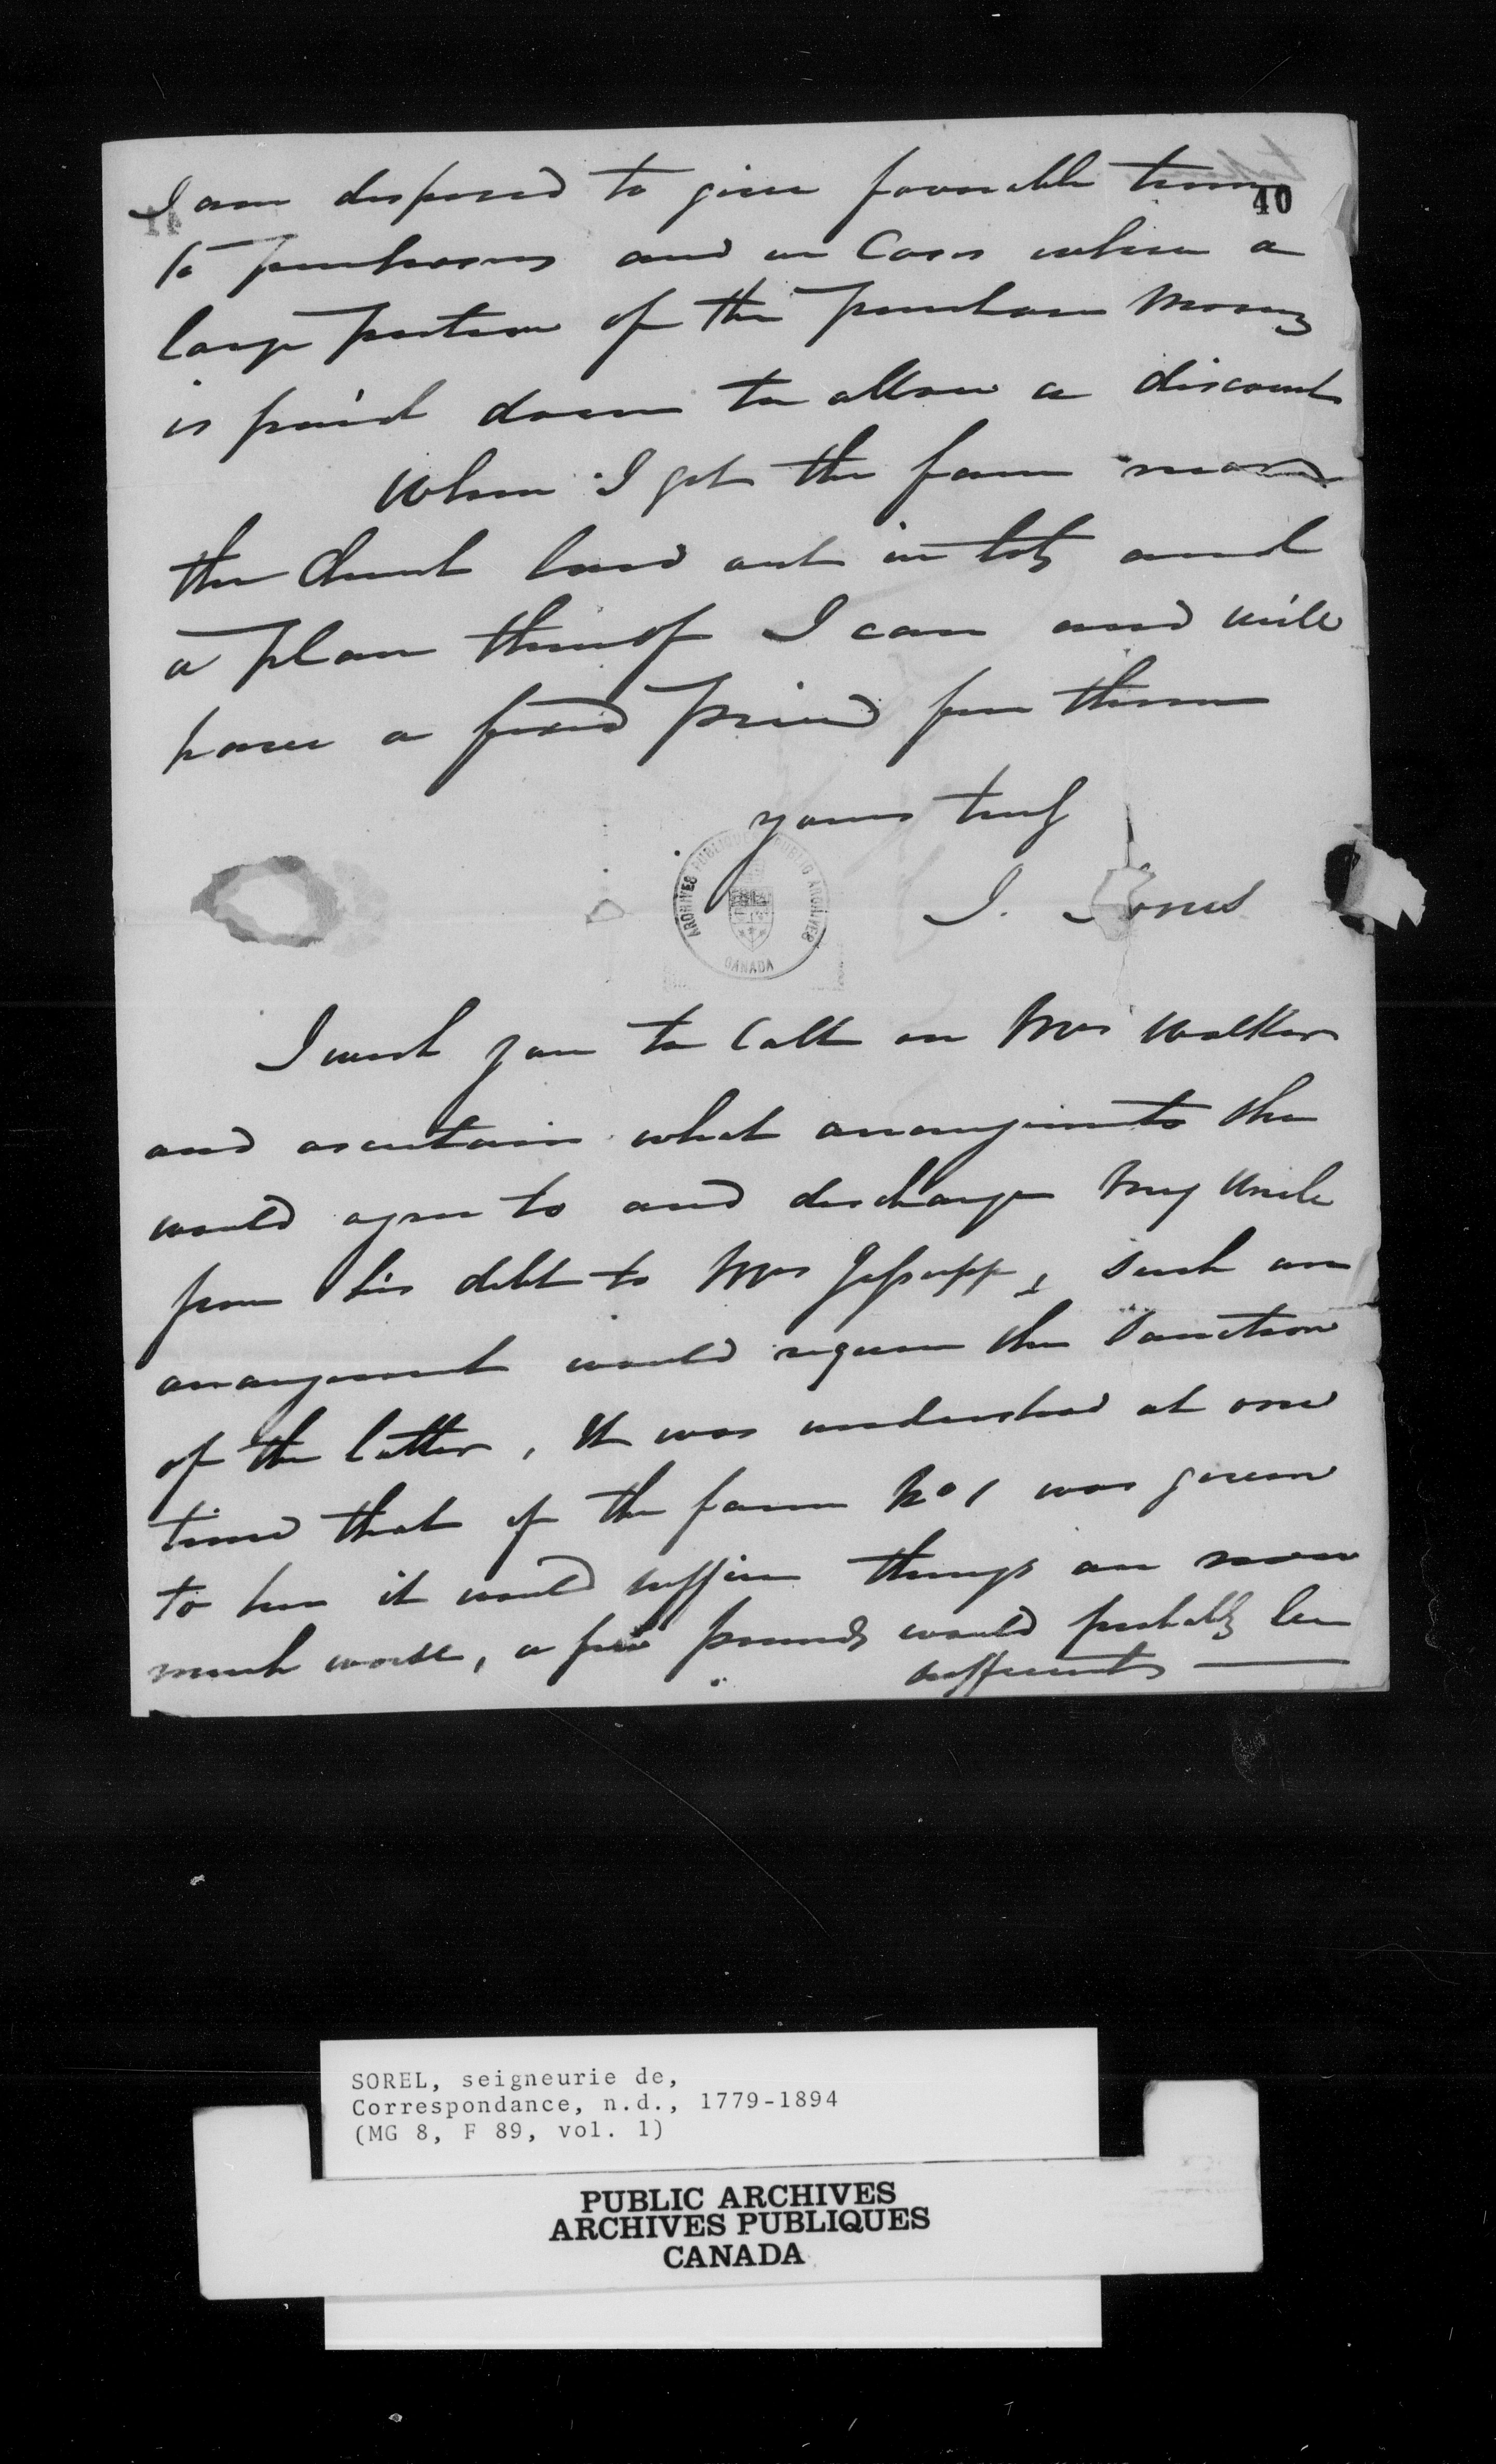 40
I am disposed to give favorable terms
to purchasers and in Cases where a
large portion of the purchase Money
is paid down to allow a discount
When I get the farm near
the Church laid out in lots and
a plan thereof I can and will
have a fixed price for them
yours truly
J. Jones
ARCHIVES PUBLIQUES PUBLIC ARCHIVES
CANADA
I wish you to Call on Mrs Walker
and ascertain what arrangements she
would agree to and discharge My Uncle
from his debt to Mrs Jessupp, such an
arrangement would require the Sanction
of the latter, It was understood at one
time that if the farm No 1 was given
to her it would suffice things are now
much worse, a few pounds would probably be
sufficient
SOREL, seigneurie de,
Correspondance, n.d., 1779-1894
(MG 8, F 89, vol. 1)
PUBLIC ARCHIVES
ARCHIVES PUBLIQUES
CANADA